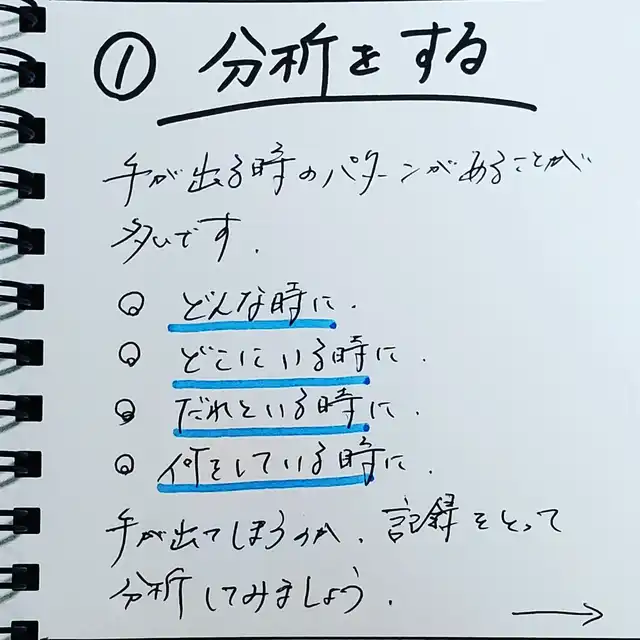 ① 分析をする
手が出る時のパターンがあることが
多いです.
○ どんな時に.
○ どこにいる時に.
○ だれといる時に.
○ 何をしている時に.
手が出てしまうのか. 記録をとって
分析してみましょう.
→